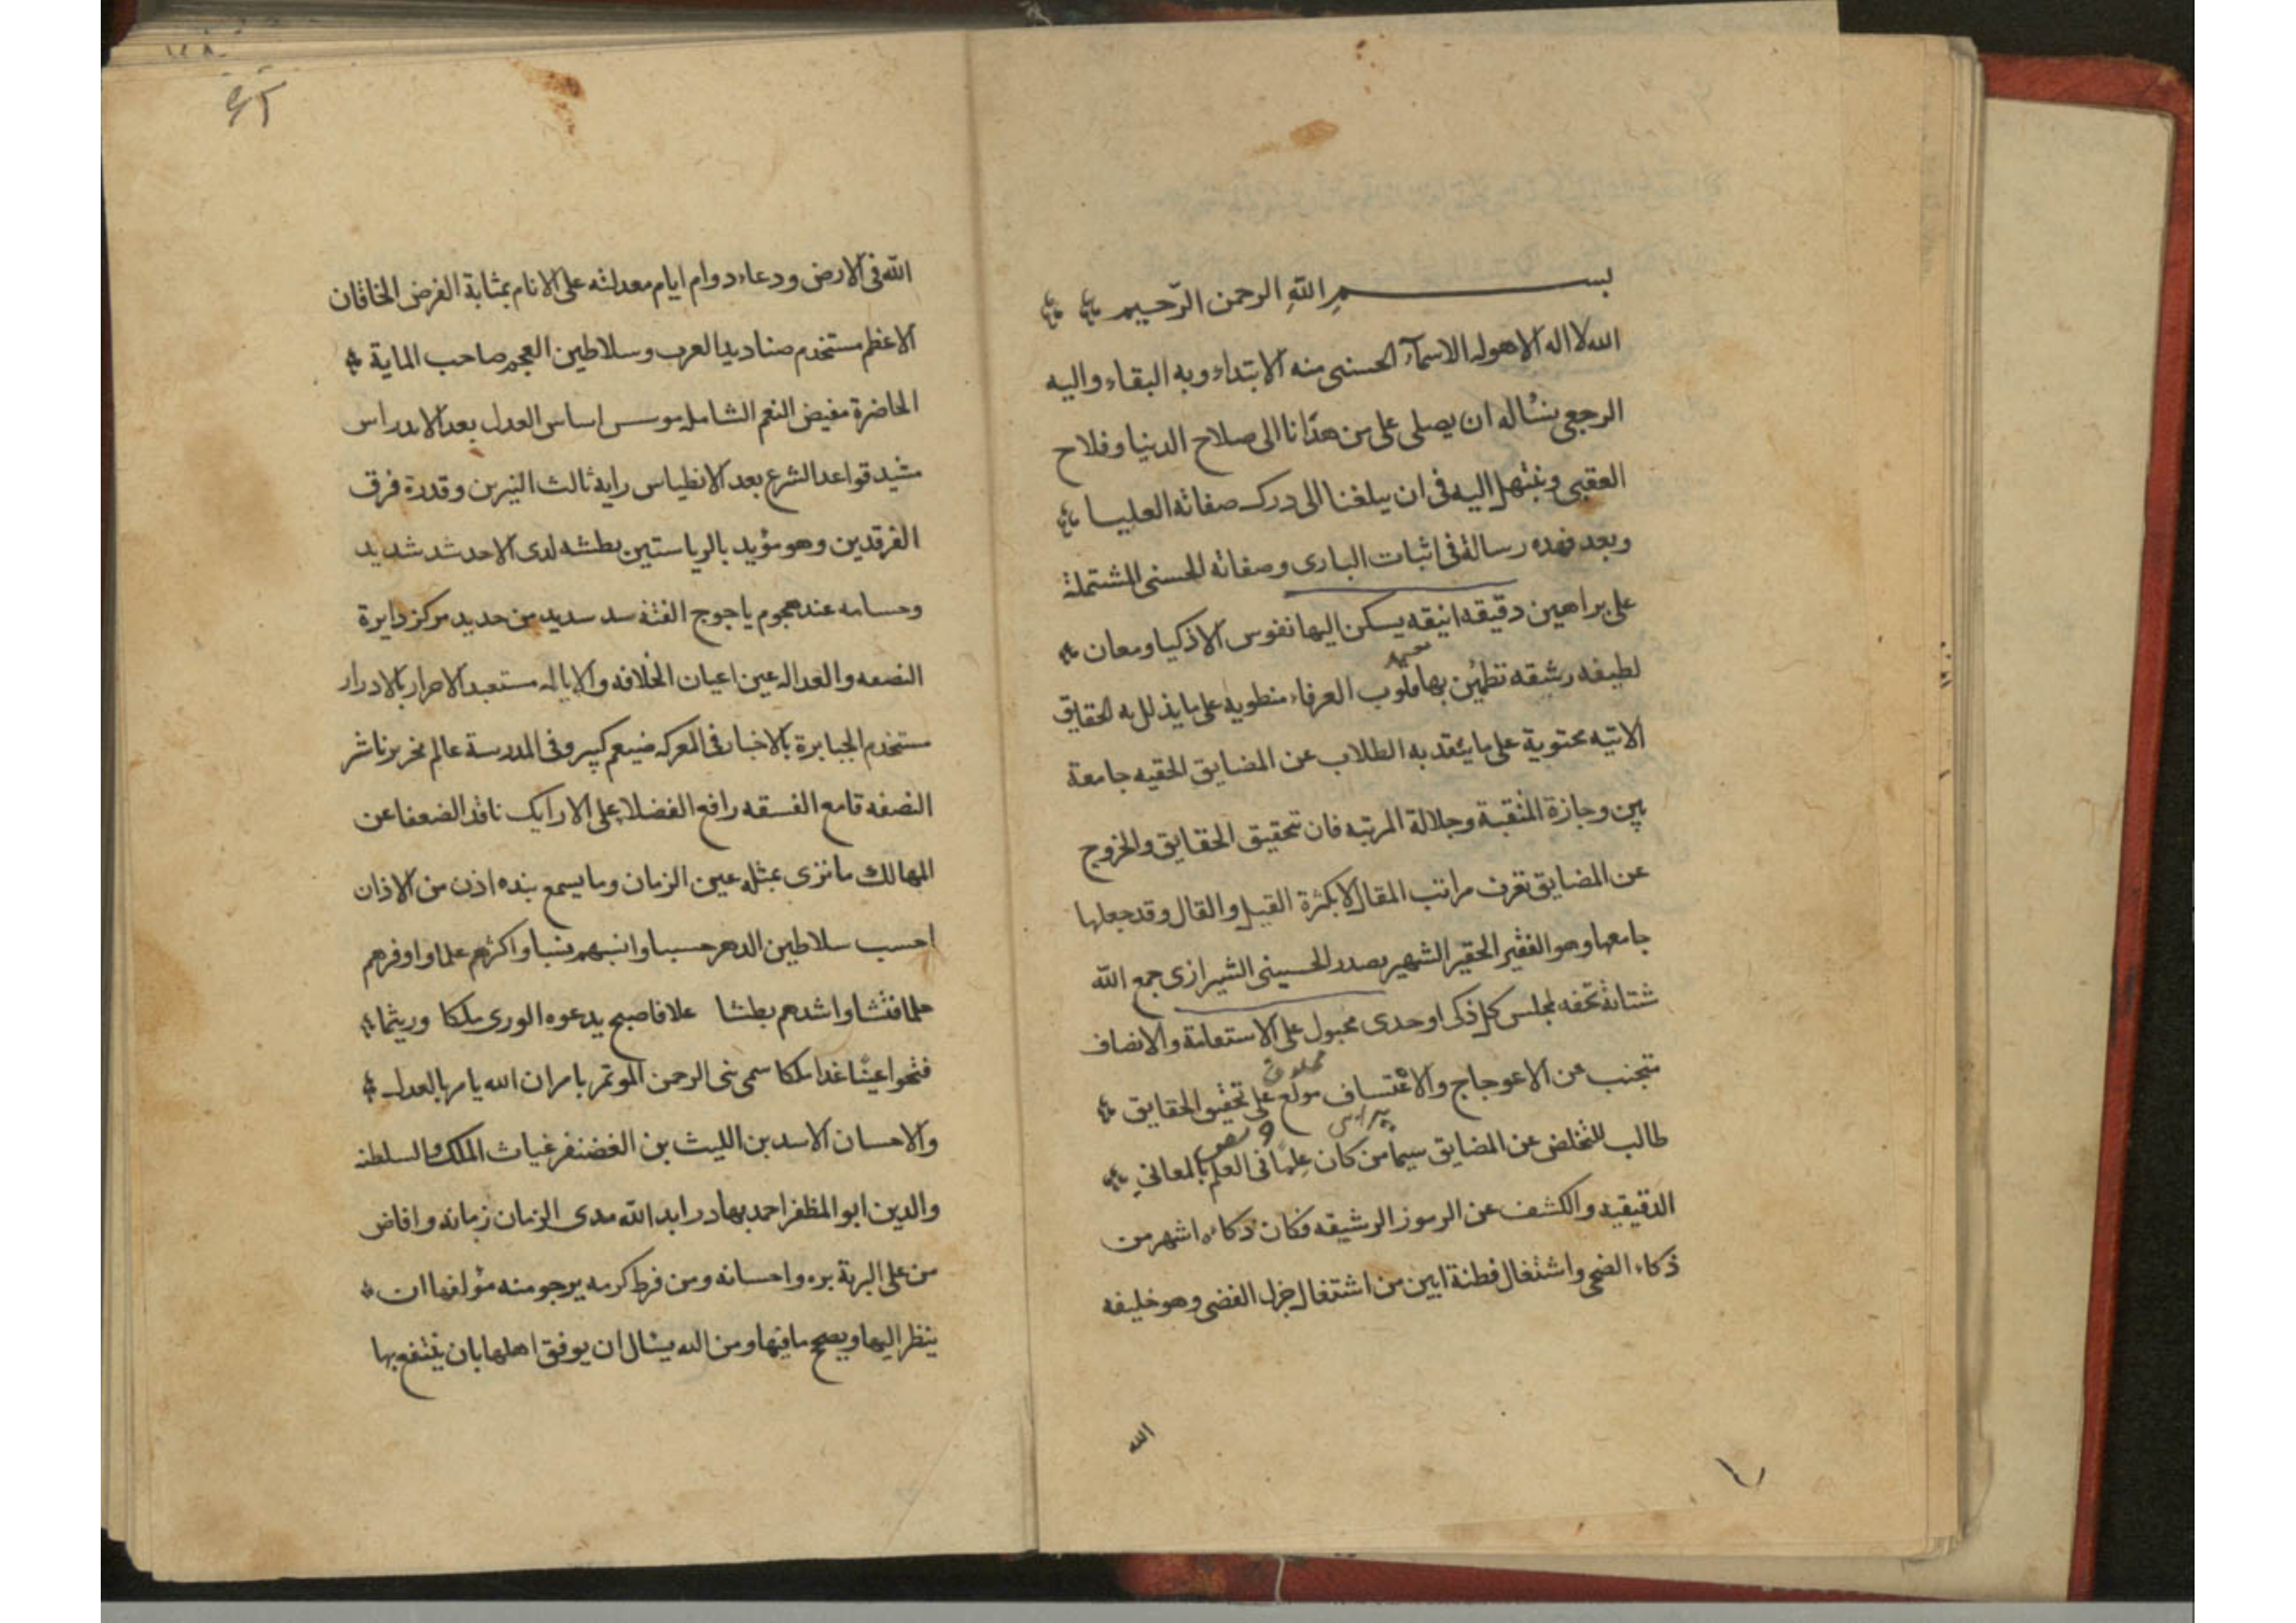 بسم الله الرحمن الرحيم
الله لا اله الا هو له الاسمآء الحسنى منه الابتداء وبه البقاء واليه
الرجعى نسأله ان يصلى على من هدانا الى صلاح الدنيا وفلاح
العقبى ونبتهل اليه فى ان يبلغنا الى درك صفاته العليا
وبعد فهذه رسالة فى اثبات البارى وصفاته الحسنى المشتملة
على براهين دقيقه انيقه يسكن اليها نفوس الاذكيا ومعان
لطيفه رشيقه تطمئن بها قلوب العرفاء منطويه على ما يذلل به الحقايق
الاتيه محتوية على ما ينقد به الطلاب عن المضايق الحقيه جامعة
بين وجازة المنقبة وجلالة المرتبه فان تحقيق الحقايق والخروج
عن المضايق تعرف مراتب المقال لا بكثرة القيل والقال وقد جعلها
جامعها وهو الفقير الحقير الشهير بصدر الحسينى الشيرازى جمع الله
شتاته تحفه لمجلس كل ذكى اوحدى مجبول على الاستقامة والانصاف
متجنب عن الاعوجاج والاعتساف مولع على تحقيق الحقايق
طالب للتخلص عن المضايق سيما من كان علما فى العلم بالمعانى
الدقيقيه والكشف عن الرموز الرشيقه فكان ذكاءه اشهر من
ذكاء الضحى واشتغال فطنة ابين من اشتغال جزل الغضى وهو خليفه
الله
٤٢
الله فى الارض ودعاء دوام ايام معدلته على الانام بمثابة الفرض الخاقان
الاعظم مستخدم صناديد العرب وسلاطين العجم صاحب الماية
الحاضرة مفيض النعم الشامله موسس اساس العدل بعد الاندراس
مشيد قواعد الشرع بعد الانطياس رايه ثالث النيرين وقدرة فرق
الفرقدين وهو مؤيد بالرياستين بطشه لدى الاحد شد شديد
وحسامه عند هجوم ياجوج الفتنه سد سديد من حديد مركز دايرة
النصفه والعداله عين اعيان الخلافه والاياله مستعبد الاحرار بالادرار
مستخدم الجبابرة بالاخبار فى المعركه ضيغم كبير وفى المدرسة عالم نحرير ناشر
النصفه قامع الفسقه رافع الفضلا على الارايك ناقد الضعفا عن
المهالك ما نزى بمثله عين الزمان وما يسمع بنده اذن من الاذان
احسب سلاطين الدهر حسبا وانسبهم نسبا واكثرهم علما واوفرهم
حلما فنشا واشدهم بطشا علا فاصبح يدعوه الورى ملكا وريثما
فتحوا عينا غدا ملكا سمى نبى الرحمن الموتمر بامر ان الله يامر بالعدل
والاحسان الاسد بن الليث بن الغضنفر غياث الملك والسلطنه
والدين ابو المظفر احمد بهادر ابد الله مدى الزمان زمانه وافاض
من على البرية بره واحسانه ومن فرط كرمه يرجو منه مؤلفها ان
ينظر اليها ويصحح ما فيها ومن الله يسال ان يوفق اهلها بان ينتفع بها